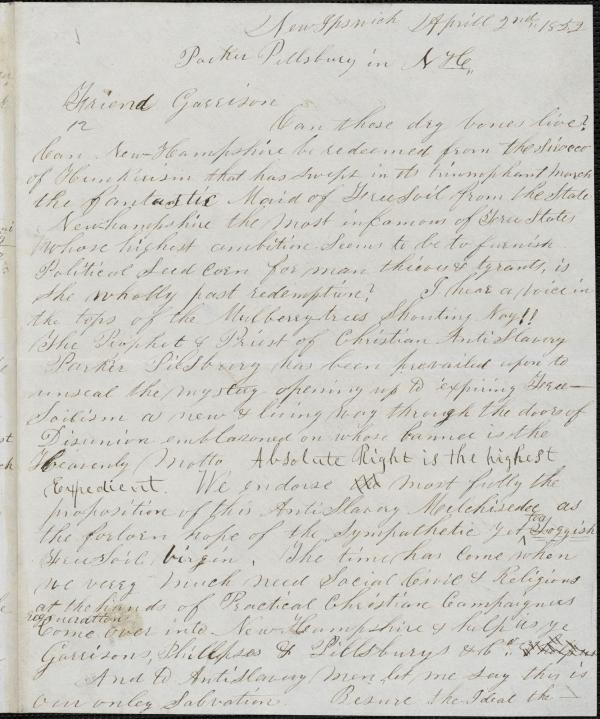 New Ipswich Aprill 2nd, 1853
Parker Pillsbury in N H.
Friend Garrison
Can those dry bones live?
Can New-Hampshire be redeemed from the Sirocco
of Hunkirism that has swept in its triumphant march
the fantastic Maid of Free Soil from the State
Newhampshire the most infamous of Free States
Whose highest ambition seems to be to furnish
Political Seed Corn for man thieves & tyrants, is
She wholly past redemption? I hear a voice in
the tops of the Mulberry trees Shouting Nay!!
The Prophet & Priest of Christian AntiSlavery
Parker Pilsbury has been prevailed upon to
unseal the mystry opening up to expiring Free-
Soilism a new & living way through the doors of
Disunion emblazoned on whose banner is the
Heavenly Motto Absolute Right is the highest
Expedient. We endorse most fully the
proposition of this AntiSlavery Melchisedec as
the forlorn hope of the Sympathetic yet
Free Soil virgin. The time has come when
we verry much need Social Civic & Religious
regeneration
at the hands of Practical Christian Campaigners
Come over into New-Hampshire & help us ye
Garrisons, Phillipses & Pillsburys & Co.
And to AntiSlavery men let me say this is
our onley Salvation. Besure the Ideal the-